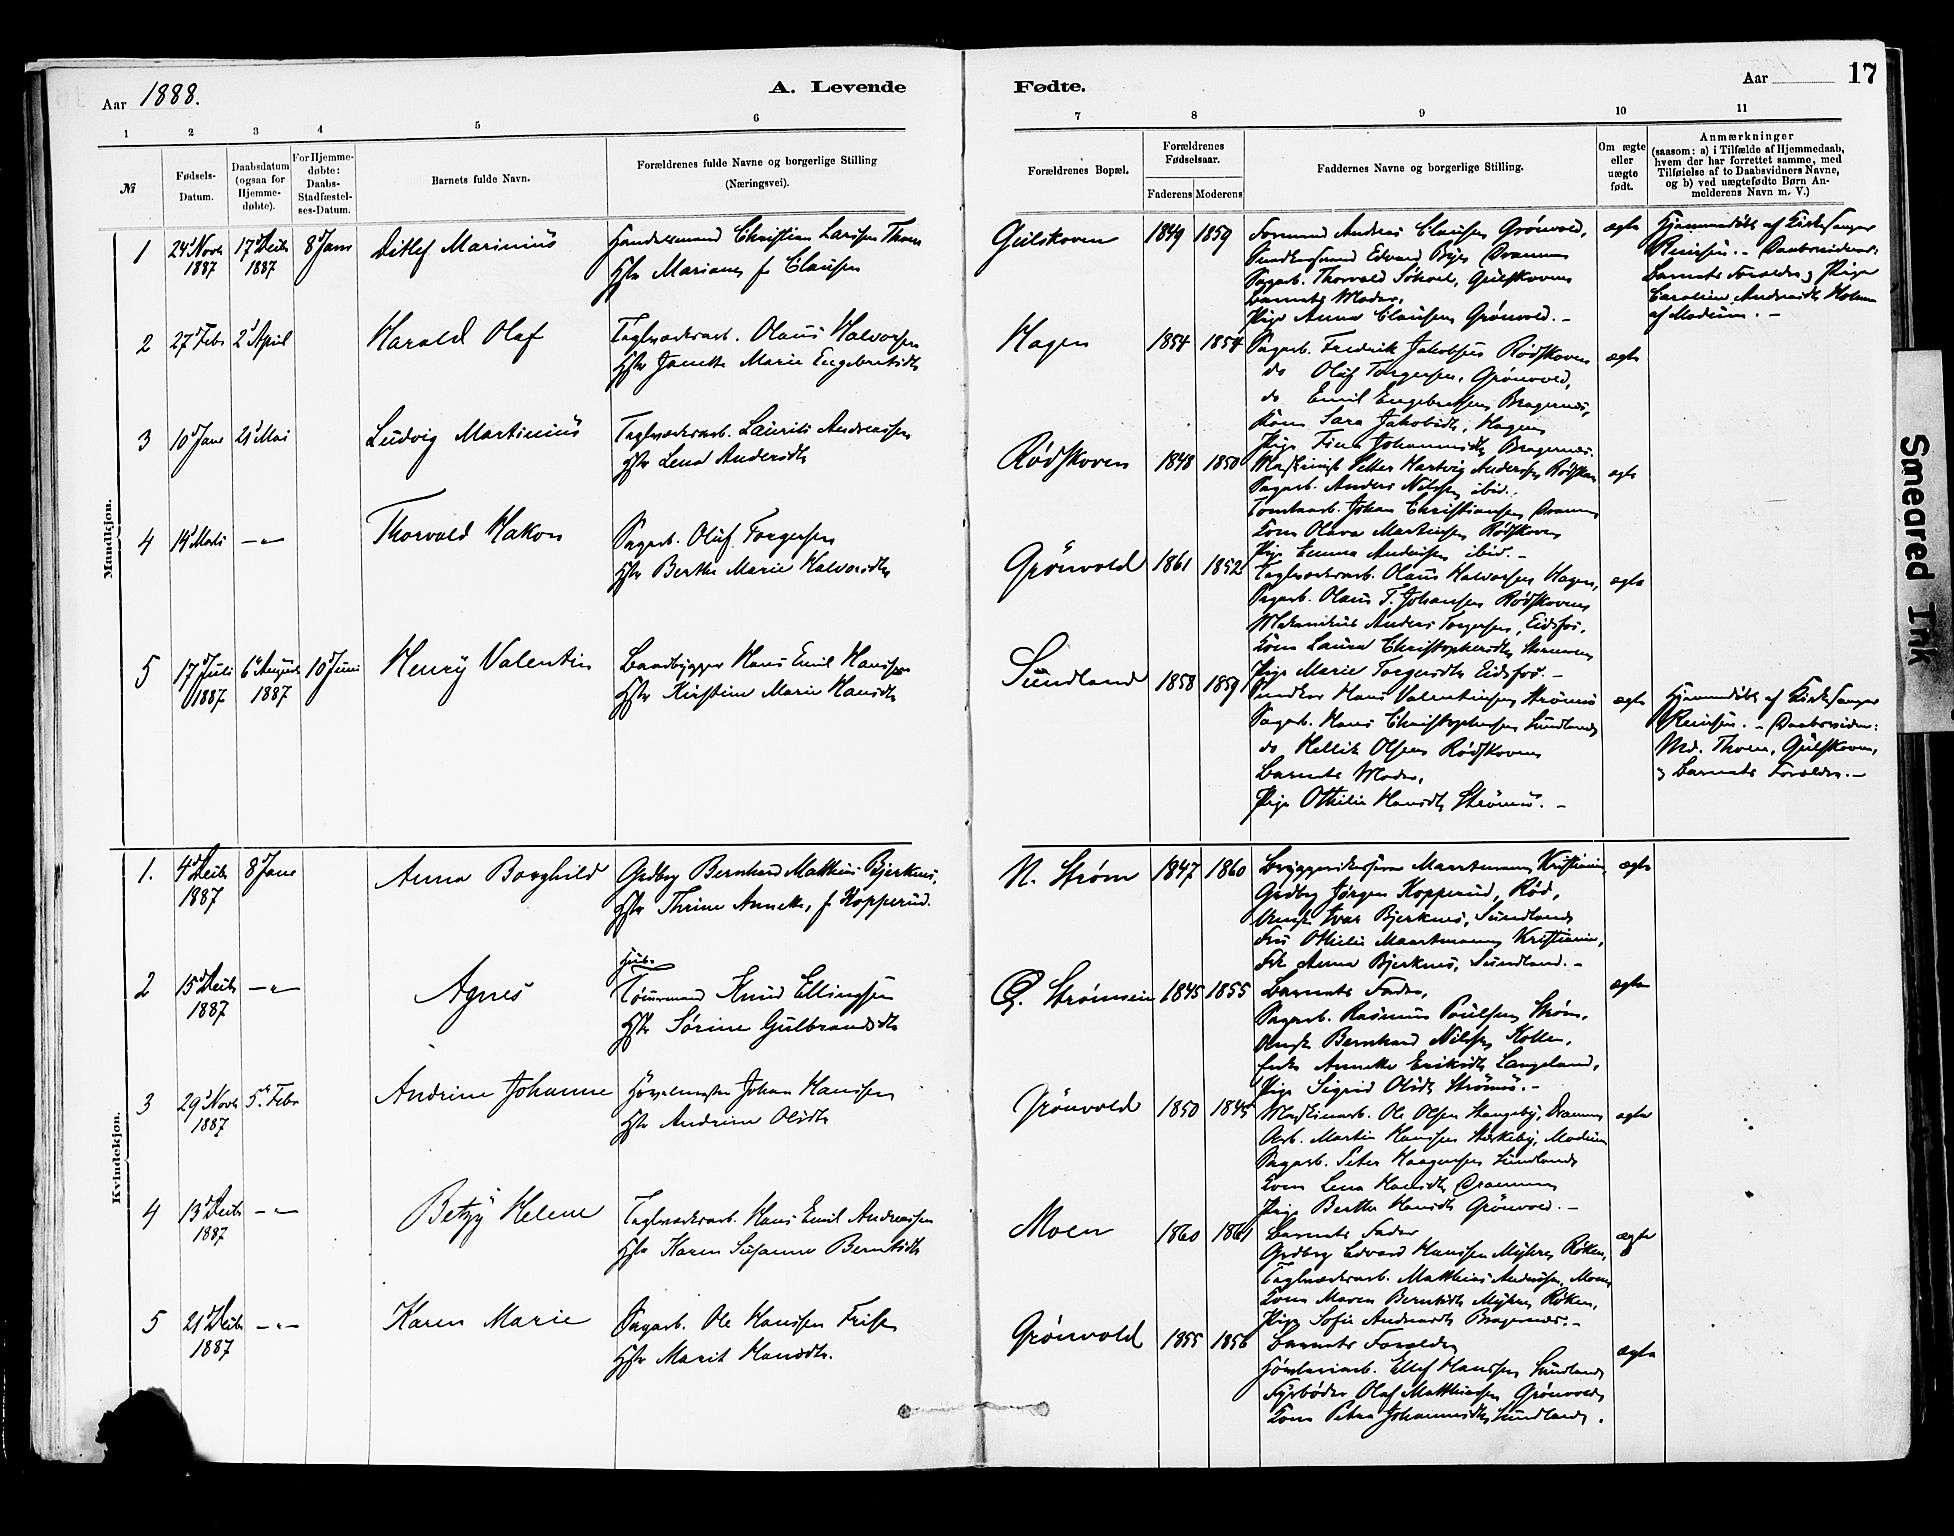 Aar 1888.
A. Levende
Fødte.
Aar
17
1 2 3 4 5 6 7 8 9 10 11
№
Fødsels-
Datum.
Daabsdatum
(ogsaa for
Hjemme-
døbte).
For Hjemme-
døbte:
Daabs-
Stadfæstel-
ses-Datum.
Barnets fulde Navn.
Forældrenes fulde Navne og borgerlige Stilling
(Næringsvei).
Forældrenes Bopæl.
Forældrenes
Fødselsaar.
Faderens Moderens
Faddernes Navne og borgerlige Stilling.
Om ægte
eller
uægte
født.
Anmærkninger
(saasom: a) i Tilfælde af Hjemmedaab,
hvem der har forrettet samme, med
Tilføielse af to Daabsvidners Navne,
og b) ved uægtefødte Børn An-
melderens Navn m. V.)
Mandkjøn.
1
24d Novb
1887
17d Decb
1887
8d Janr
Ditlef Marinius
Handelsmand Christian Larssen Thoen
Hstr Mariane f. Clausen
Gulskoven
1849
1859
Formand Andreas Clausen Grönvold,
Edvard
Sagarb. Thorvald Gulskoven
Barnets Moder,
Pige Anna Clausen Grönvold. -
ægte
Hjemmedöbt af Kirkesanger
Daabsvidner:
Barnets Forældre, Pige
Caroline Andreasdt Holum
af Modum. -
2
27d Febr
2d April
Harald Olaf
Teglværksarb. Olaus Halvorsen
Hstr Janette Marie Engebretsdt
Hagen
1854
1854
Sagarb. Fredrik Jakobsen Rödskoven
do Oluf Torgersen, Grönvold,
do Emil Engebretsen Bragernæs,
Kone Sara Jakobsdt, Hagen
Pige Tina Johannesdt, Bragernæs.
ægte
3
10d Janr
21d Mai
Ludvig Martinius
Teglværksarb. Laurits Andreassen
Hstr Lena Andersdt
Rödskoven
1848
1850
Maskinist Petter Hartvig Andersen Rödskoven
Sagarb. Anders Nilssen ibid.
Tomtearb. Johan Christiansen Drammen
Kone Olava Martinsen Rödskoven
Pige Emma Andersen ibid. -
ægte
4
14d Marts
- " -
Thorvald Hakon
Sagarb. Oluf Torgersen
Hstr Berthe Marie Halvorsdt
Grönvold
1861
1852
Teglværksarb. Olaus Halvorsen Hagen,
Sagarb. Olaus T. Johansen Rödskoven
Mekanikus Anders Torgersen, Eidsfos.
Kone Laura Christophersdt,
Pige Marie Torgersdt Eidsfos. -
ægte
5
17d Juli
1887
6d August
1887
10d Juni
Henry Valentin
Baadbygger Hans Emil Hanssen
Hstr Kirstine Marie Hansdt
Sundland
1858
1859
Snedker Hans Valentinsen Strömsö
Sagarb. Hans Christophersen Sundland
do Hellik Olsen Rödskoven
Barnets Moder,
Pige Othilie Hansdt, Strömsö. -
ægte
Hjemmedöbt af Kirkesanger
Daabsvidner:
Md. Thoen, Gulskoven,
& Barnets Forældre. -
Kvindekjøn.
1.
4d Decb
1887
8d Janr
Anna Borghild
Grdbrg Bernhard Matthias Bjerknes,
Hstr Thrine Annette, f. Kopperud.
N. Ström
1847
1860
Maartmann, Kristiania,
Grdbrg Jörgen Kopperud, Röd,
Ivar Bjerknes, Sundland,
Fru Othilie Maartmann, Kristiania,
Frk Anna Bjerknes, Sundland. -
ægte
2
15d Decb
1887
- " -
Agnes
Tömmermand Knud Ellingsen
Hstr Sörine Gulbrandsdt
1845
1855
Barnets Fader,
Sagarb. Rasmus Poulsen Ström,
Bernhard Nilsen Kollen,
Enke Annette Eriksdt, Langeland,
Pige Sigrid Olsdt Strömsö. -
ægte
3
29d Novb
1887
5d Febr
Andrine Johanne
Hövelmester Johan Hanssen
Hstr Andrine Olsdt
Grönvold
1850
1845
Maskinarb. Ole Olsen Drammen
Arb. Martin Hanssen Modum
Sagarb. Peter Haagensen Sundland
Kone Lena Hansdt, Drammen
Pige Berthe Hansdt Grönvold. -
ægte
4
13d Decb
1887
- " -
Betzy Helene
Teglværksarb. Hans Emil Andreassen
Hstr Karen Susanne Berntsdt
Moen
1860
1861
Barnets Fader
Grdbrg Edvard Hanssen Myhre, Röken,
Teglværksarb. Matthias Andersen, Moen
Kone Maren Berntsdt Myhre, Röken,
Pige Sofie Andreasdt Bragernæs. -
ægte
5
21d Decb
1887
- " -
Karen Marie
Sagarb. Ole Hanssen
Hstr Marit Hansdt.
Grönvold
1855
1856
Barnets Forældre
Ellef Hanssen Sundland
Fyrböder Olaf Matthiesen Grönvold,
Kone Petra Johannesdt, Sundland.
ægte
Smeared Ink